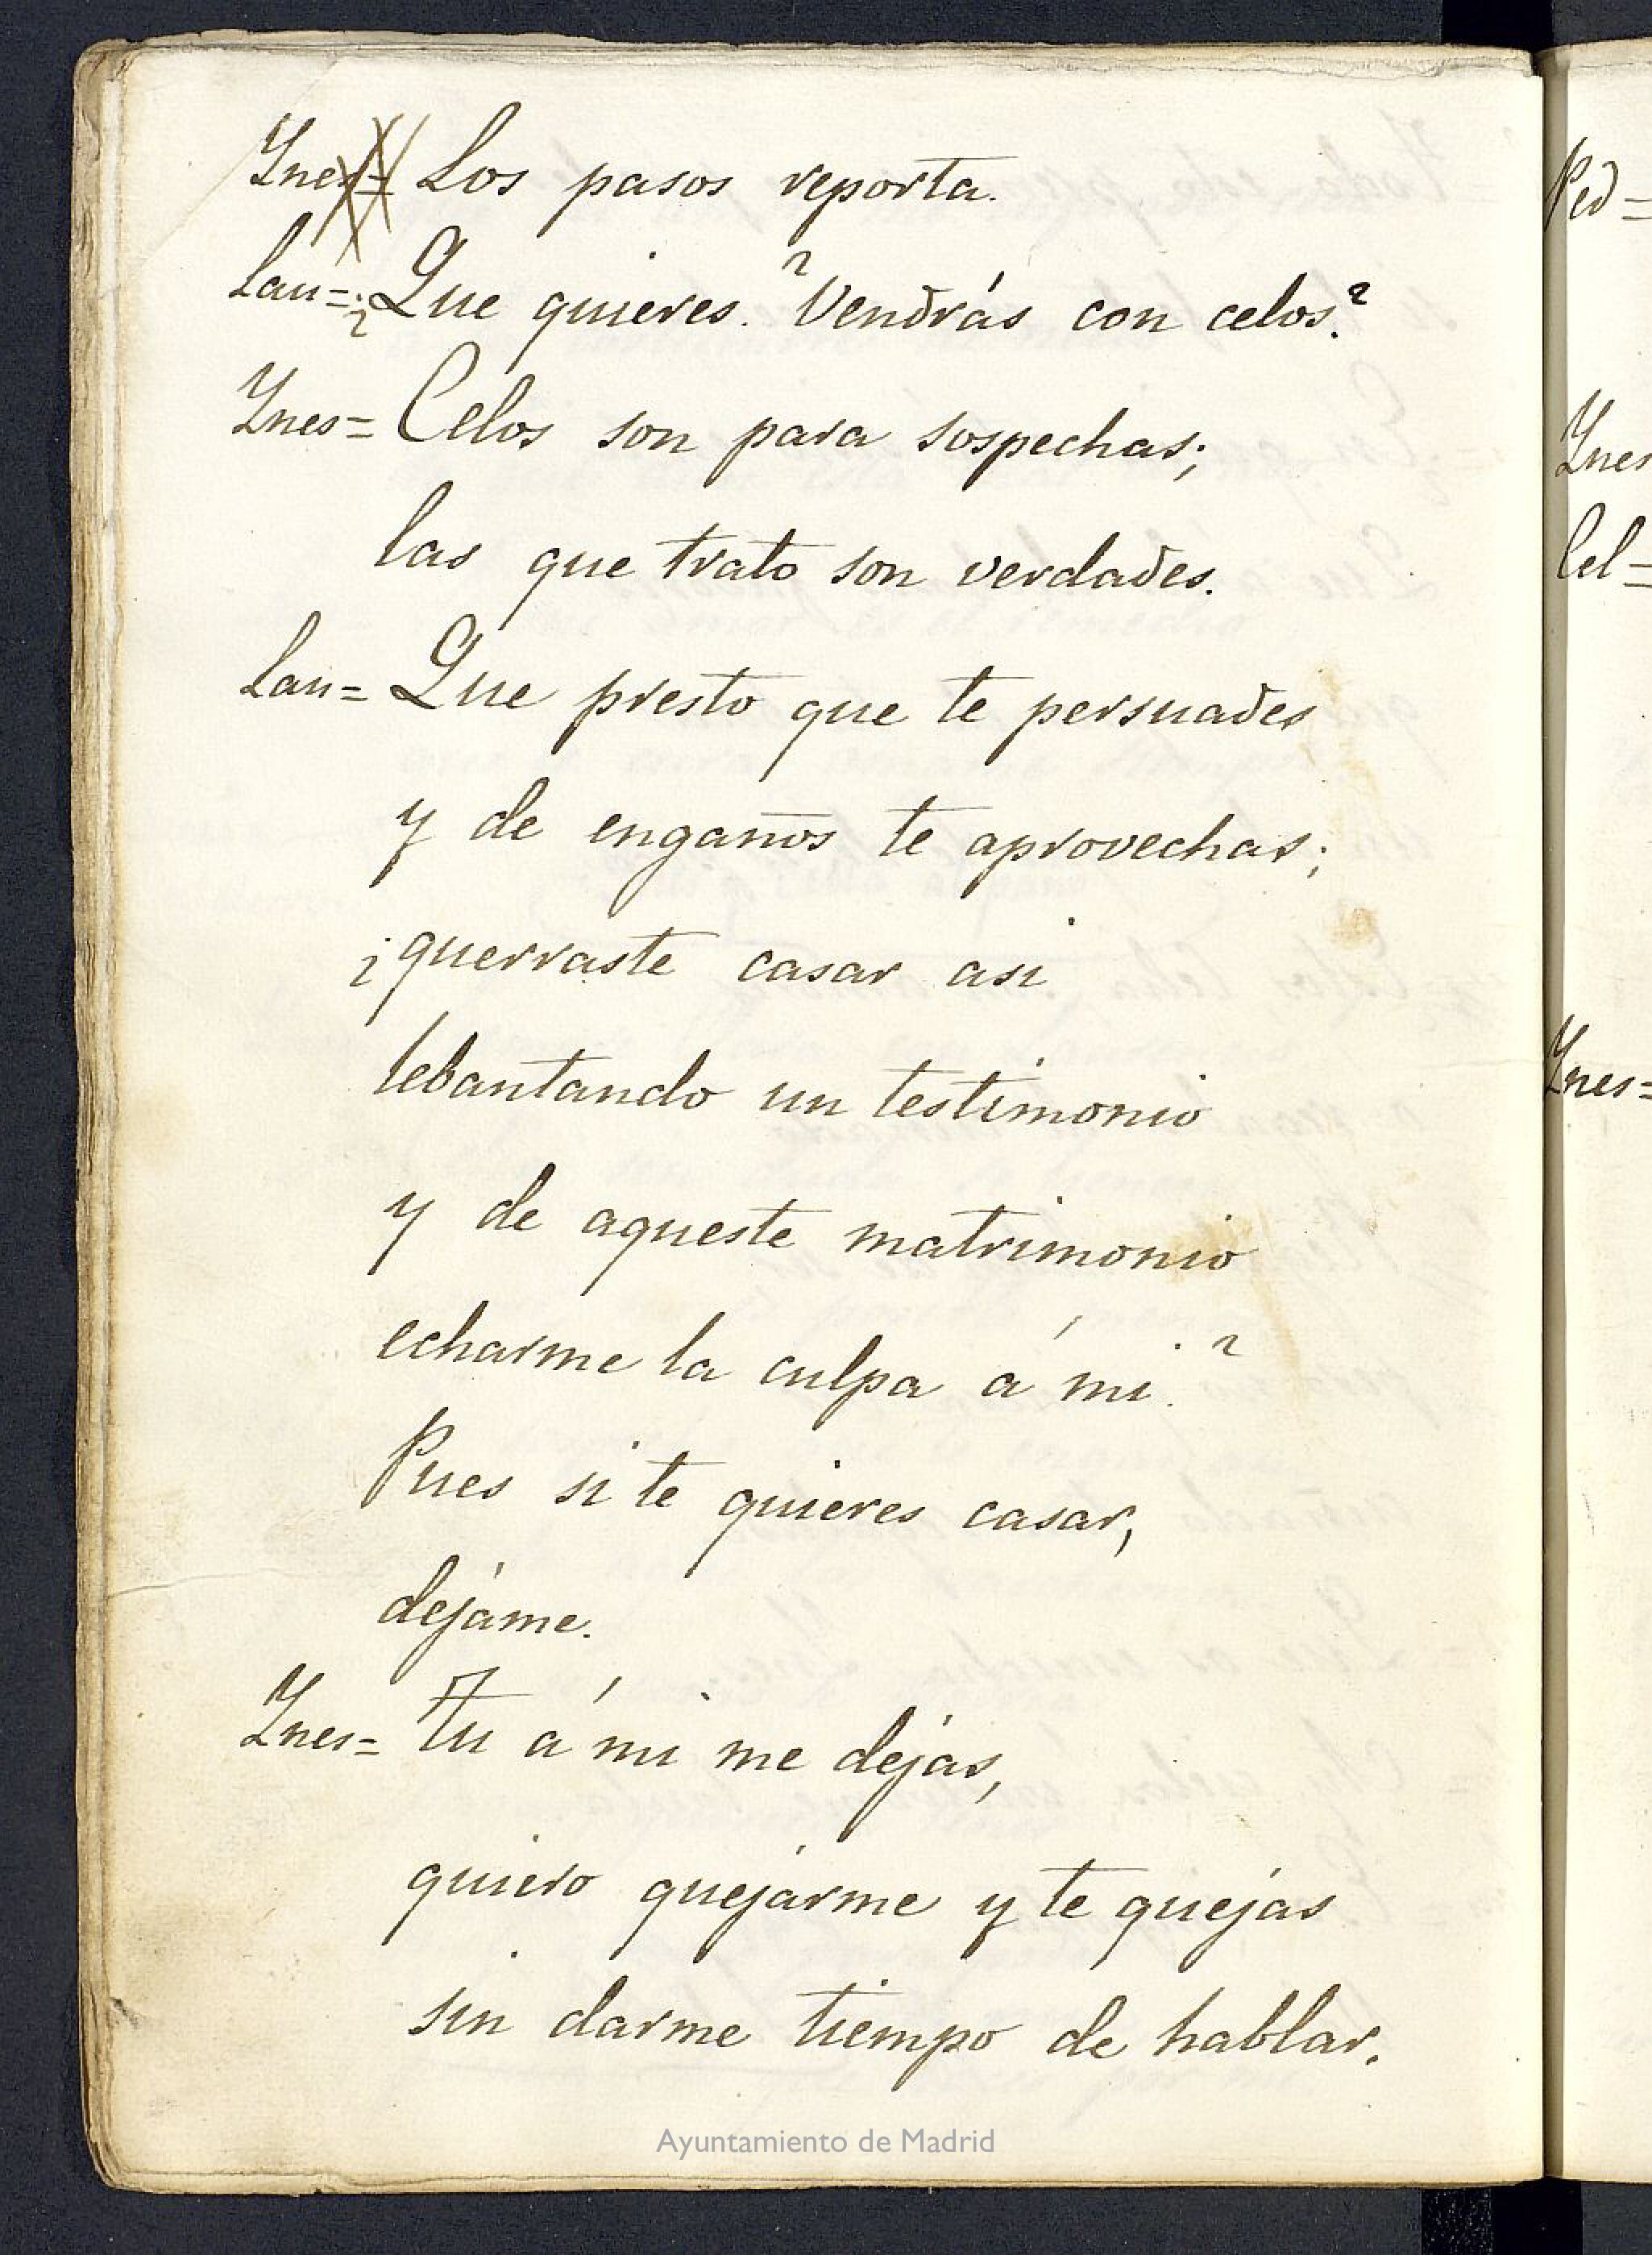 Ynes= Los pasos reporta.
Lau= ¿Que quieres.? Vendrás con celos?
Ynes= Celos son para sospechas;
las que trato son verdades.
Lau= Que presto que te persuades
y de engaños te aprovechas;
¿querraste casar asi
lebantando un testimonio
y de aqueste matrimonio
echarme la culpa á mi.?
Pues si te quieres casar,
dejáme.
Ynes= Tu á mi me dejas,
quiero quejarme y te quejas
sin darme tiempo de hablar.
Ayuntamiento de Madrid
Ped=
Ynes
Cel=
Ynes=